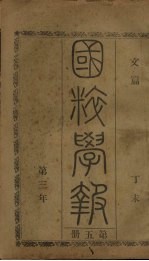 文篇
丁未
國粹學報
第五冊
第三年